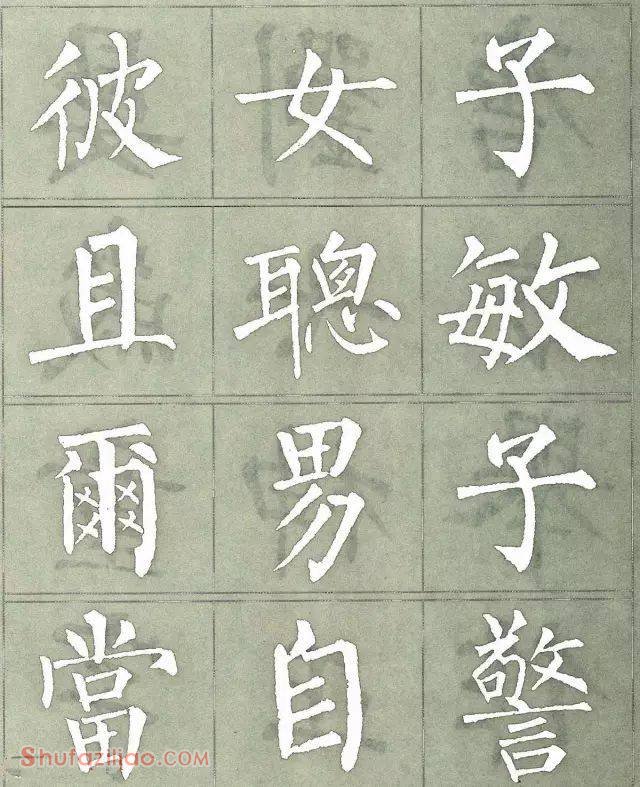 彼女子
且聰敏
爾男子
當自警
Shufaziliao.com